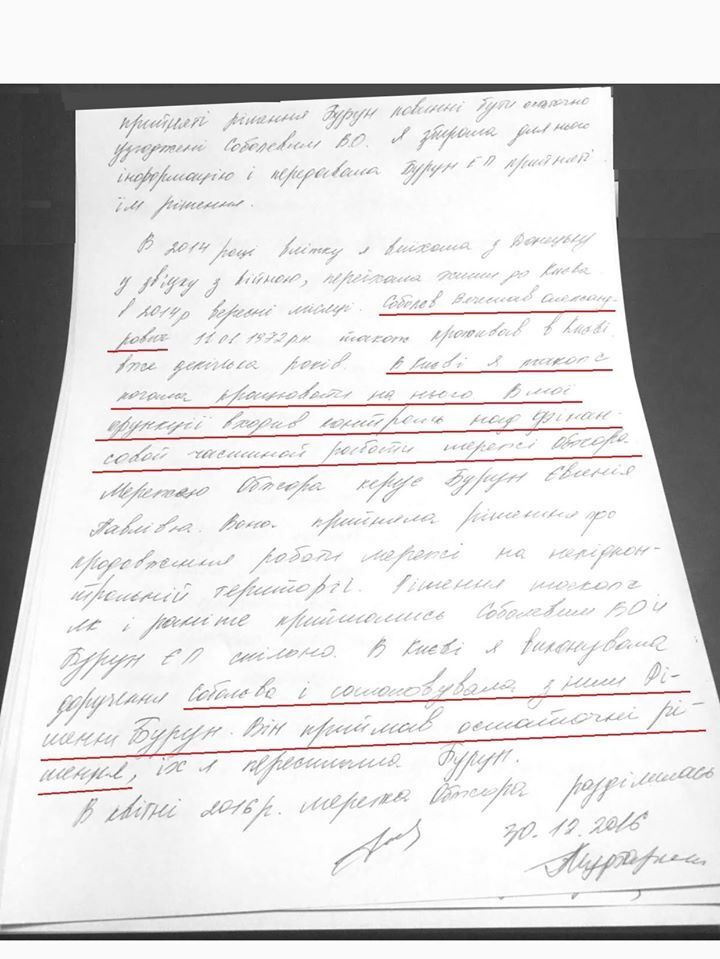 прийняті рішення Бурун повинні бути остаточно
узгоджені Соболєвим В.О. Я збирала для нього
інформацію і передавала Бурун ЄП прийняті
їм рішення.
В 2014 році влітку я виїхала з Донецьку
у звязку з війною, переїхала жити до Києва
в 2014р вересні місяці. Соболєв Вячеслав Олександ-
рович 11.01 1972рн також проживав в Києві
вже декілька років. В Києві я також
почала працювати на нього В мої
функції входив контроль над фінан-
совой частиной роботи мережі Обжора.
Мережею Обжора керує Бурун Євгенія
Павлівна. Вона прийняла рішення про
продовження роботи мережі на непідкон-
трольній території. Рішення також
як і раніше приймались Соболєвим ВО й
Бурун ЄП спільно. В Києві я виконувала
доручення Соболєва і согласовувала з ним рі-
шення Бурун. Він приймав остаточні рі-
шення, їх я пересилала Бурун.
В квітні 2016 р. мережа Обжора разділилась
30.12.2016